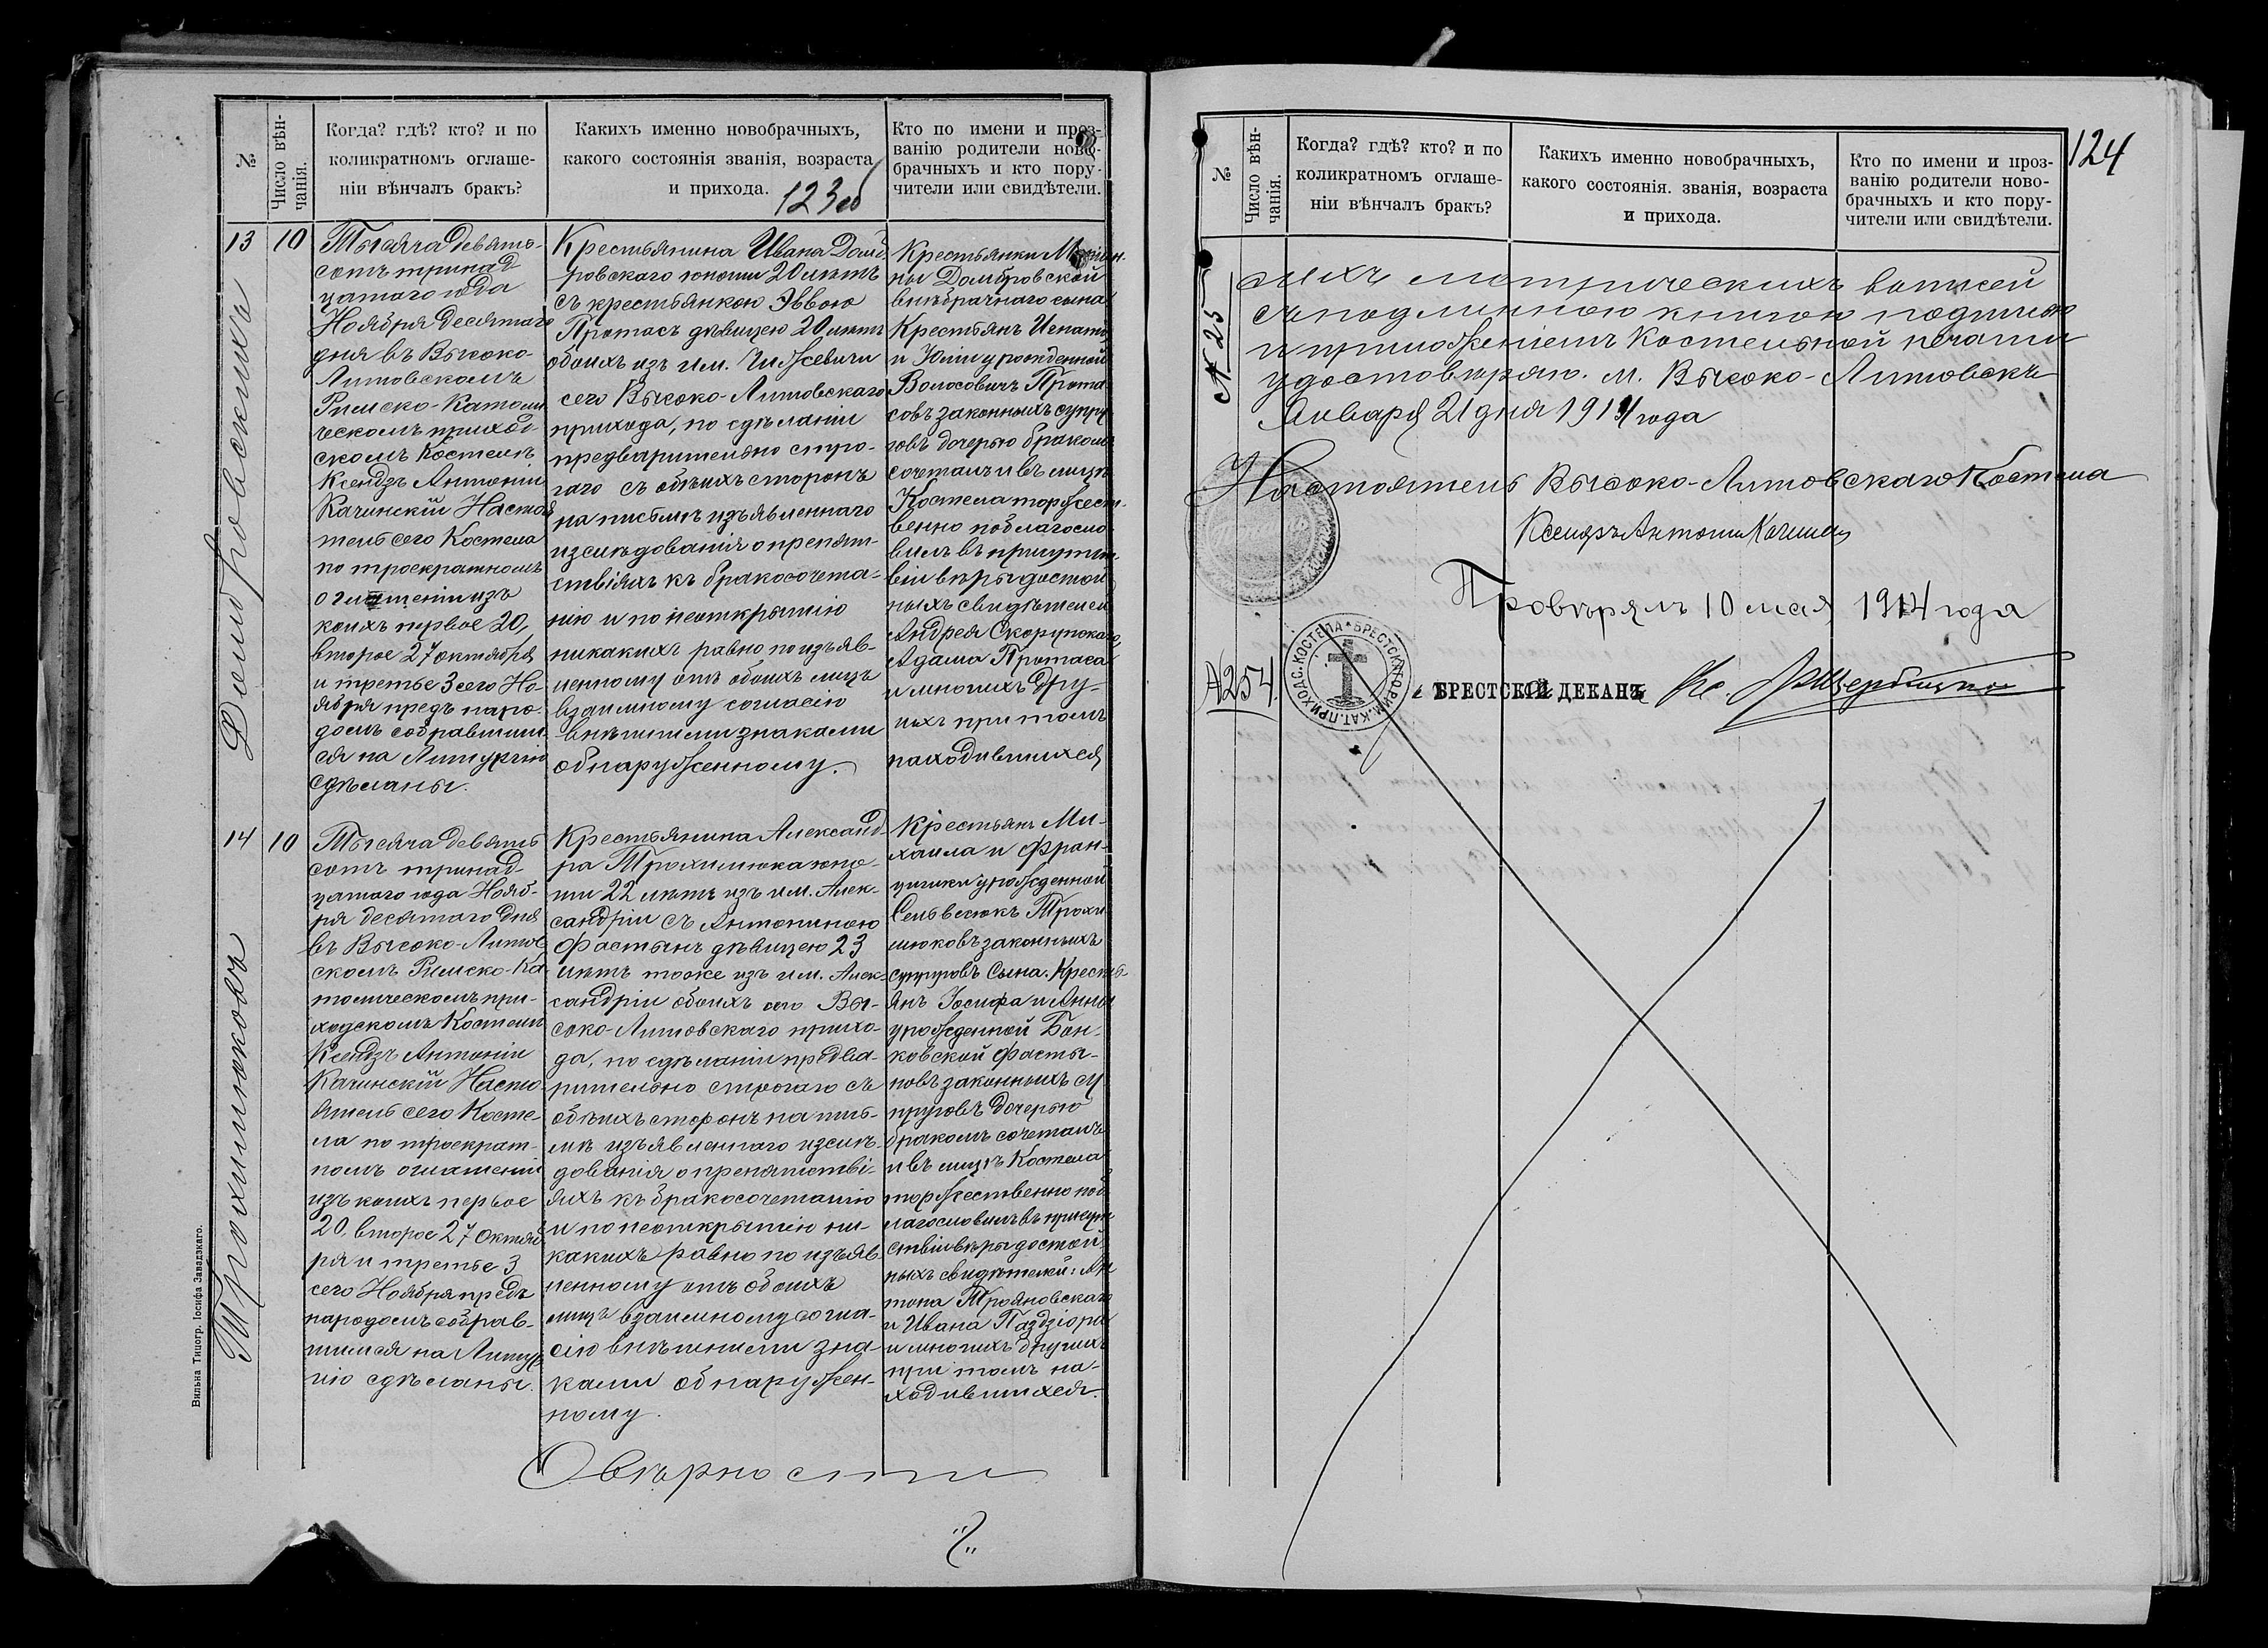 №
Число вѣн-
чанія.
Когда? гдѣ? кто? и по
коликратномъ оглаше-
ніи вѣнчалъ бракъ?
Какихъ именно новобрачныхъ,
какого состоянія званія, возраста
и прихода.
123об
Кто по имени и проз-
ванію родители ново-
брачныхъ и кто пору-
чители или свидѣтели.
13
10
Домбровскихъ
Тысяча девять-
сотъ тринад
цатаго года
Ноября десятаго
дня въ Высоко-
Литовскомъ
Римско-Католи
ческомъ приход-
скомъ Костелѣ
Ксендзъ Антоній
Качинскій Настоя
тель сего Костела
по троекратномъ
оглашеніи изъ
коихъ первое 20,
второе 27 октября
и третье 3 сего Но-
ября предъ наро-
домъ собравшим
ся на Литургію
сдѣланы.
Крестьянина Ивана Домб
ровскаго юношу 20 лѣтъ
съ крестьянкою Эввою
Протасъ дѣвицею 20 лѣтъ
обоихъ изъ им.
сего Высоко-Литовскаго
прихода, по сдѣланіи
предварительно стро-
гаго съ обѣихъ сторонъ
на письмѣ изъявленнаго
изслѣдованія о препят-
ствіяхъ къ бракосочета-
нію и по неоткрытію
никакихъ равно по изъяв-
ленному отъ обоихъ лицъ
взаимному согласію
внѣшними знаками
обнаруженному.
Крестьянки
ны Домбровской
внѣбрачнаго сына
Крестьянъ Игнатія
и Юліи урожденной
Волосовичъ Прота-
совъ законныхъ супру
говъ дочерью бракомъ
сочеталъ и въ лицѣ
Костела торжест-
венно поблагосло-
вилъ въ присутст-
віи вѣры достой
ныхъ свидѣтелей
Андрея Скорупскаго,
Адама Протаса
и многихъ дру-
гихъ при томъ
находившихся
14
10
Трохимюковъ
Тысяча девять
сотъ тринад
цатаго года Нояб-
ря десятаго дня
въ Высоко-Литов
скомъ Римско-Ка
толическомъ при-
ходскомъ Костелѣ
Ксендзъ Антоній
Качинскій Насто-
ятель сего Косте-
ла по троекрат-
номъ оглашеніи
изъ коихъ первое
20, второе 27 октяб
ря и третье 3
сего Ноября предъ
народомъ собрав-
шимся на Литур
гію сдѣланы.
Крестьянина Александ-
ра Трохимюка юно-
шу 22 лѣтъ изъ им. Алек-
сандріи съ Антониною
Фастынъ дѣвицею 23
лѣтъ тоже изъ им. Алек-
сандріи обоихъ сего Вы-
соко-Литовскаго прихо-
да, по сдѣланіи предва-
рительно строгаго съ
обѣихъ сторонъ на пись-
мѣ изъявленнаго изслѣ-
дованія о препятстві-
яхъ къ бракосочетанію
и по неоткрытію ни-
какихъ равно по изъяв
ленному отъ обоихъ
лицъ взаимному согла-
сію внѣшними зна-
ками обнаружен-
ному.
Крестьянъ Ми-
хаила и Фран-
цишки урожденной
Сельвесюкъ Трохи
мюковъ законныхъ
супруговъ сына. Кресть-
янъ Іосифа и Анны
урожденной Бон-
ковской Фасты-
новъ законныхъ су
пруговъ дочерью
бракомъ сочеталъ
и въ лицѣ Костела
торжественно поб
лагословилъ въ присут
ствіи вѣры достой-
ныхъ свидѣтелей: Ан
тона Трояновскаго
и Ивана Паздзіора
и многихъ другихъ
при томъ на-
ходившихся.
О вѣрности
Вильна Типогр. Іосифа Завадзкаго.
124
№
Число вѣн-
чанія.
Когда? гдѣ? кто? и по
коликратномъ оглаше-
ніи вѣнчалъ бракъ?
Какихъ именно новобрачныхъ,
какого состоянія. званія, возраста
и прихода.
Кто по имени и проз-
ванію родители ново-
брачныхъ и кто пору-
чители или свидѣтели.
№ 25
сихъ метрическихъ записей
съ подлинною книгою подписью
и приложеніемъ Костельной печати
удостовѣряю. м. Высоко-Литовскъ
Января 21 дня 1914 года
Настоятель Высоко-Литовскаго Костела
Ксендзъ Антоній
Провѣрялъ 10 мая 1914 года
№254.
ПРИХОДС. КОСТЕЛА * БРЕСТСКАГО РИМ. КАТ.
БРЕСТСКІЙ ДЕКАНЪ Кс.